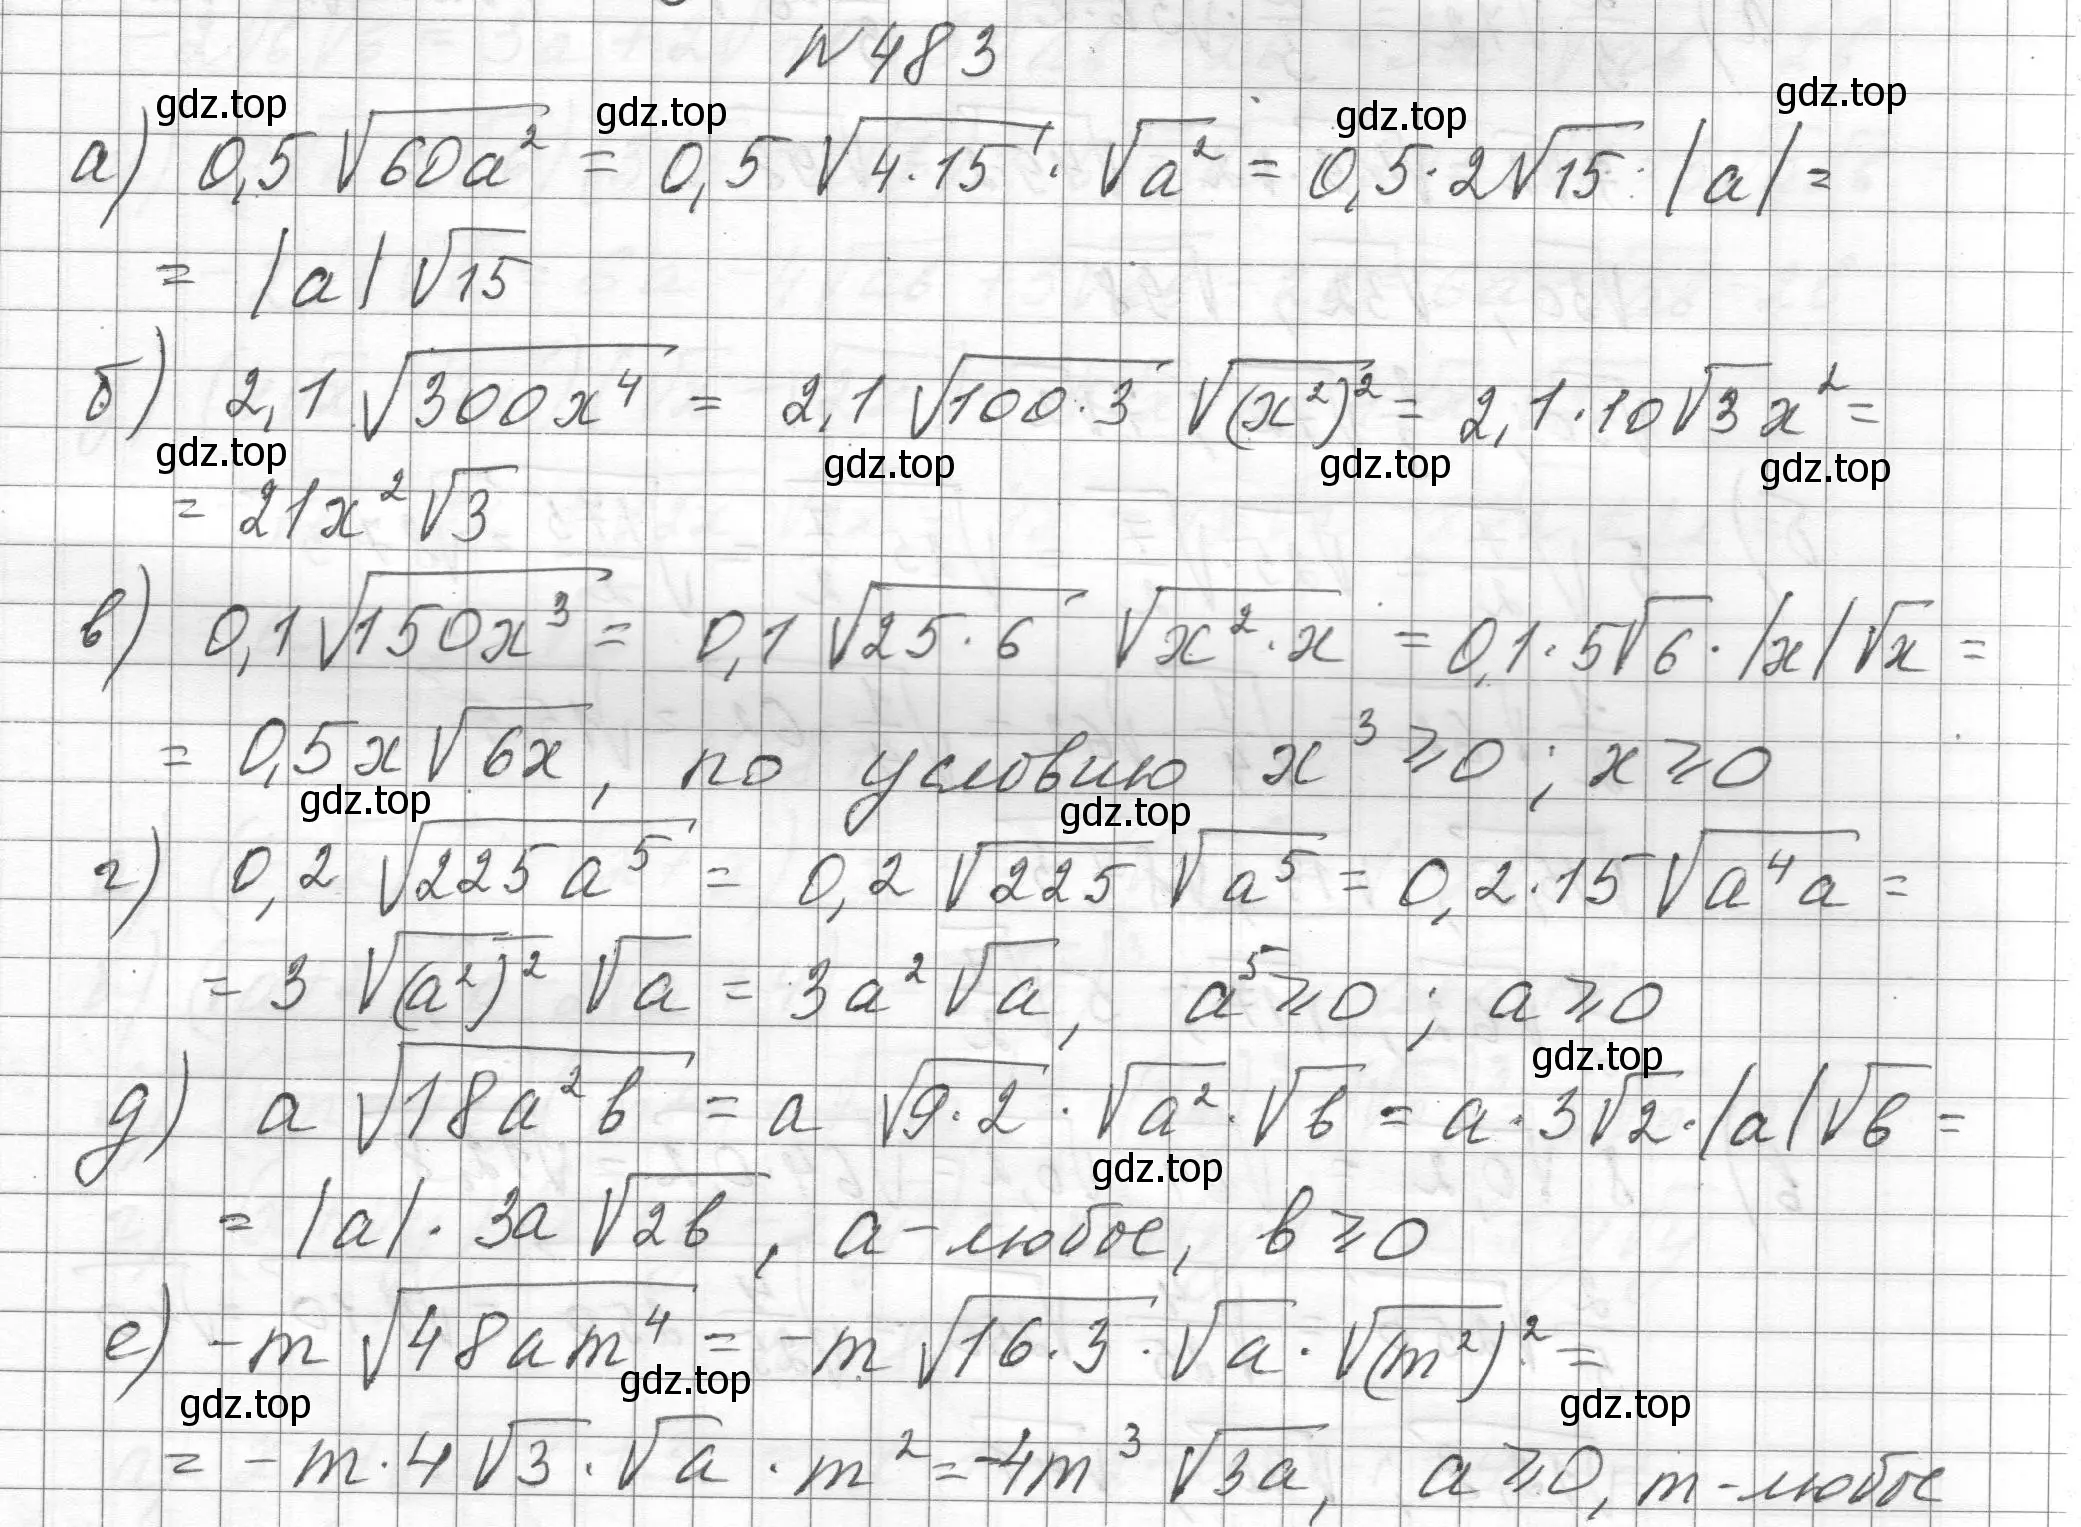 N 483
gdz.top gdz.top gdz.top gdz.top
а) 0,5 √(60a²) = 0,5 √(4·15) · √(a²) = 0,5·2√15 · |a| =
= |a| √15
б) 2,1 √(300x⁴) = 2,1 √(100·3) √((x²)²) = 2,1·10√3 x² =
gdz.top gdz.top gdz.top gdz.top
= 21x² √3
в) 0,1 √(150x³) = 0,1 √(25·6) √(x²·x) = 0,1·5√6 · |x| √x =
= 0,5x √(6x), по условию x³ ⩾ 0 ; x ⩾ 0
gdz.top gdz.top
г) 0,2 √(225a⁵) = 0,2 √225 √(a⁵) = 0,2·15 √(a⁴a) =
= 3 √((a²)²) √a = 3a² √a, a⁵ ⩾ 0 ; a ⩾ 0
gdz.top
д) a √(18a²b) = a √(9·2) · √(a²) · √b = a·3√2 · |a| √b =
gdz.top
= |a| · 3a √(2b), a - любое, b ⩾ 0
е) -m √(48am⁴) = -m √(16·3) · √a · √(m²)² =
gdz.top gdz.top gdz.top
= -m·4 √3 · √a · m² = -4m³ √(3a), a ⩾ 0, m - любое